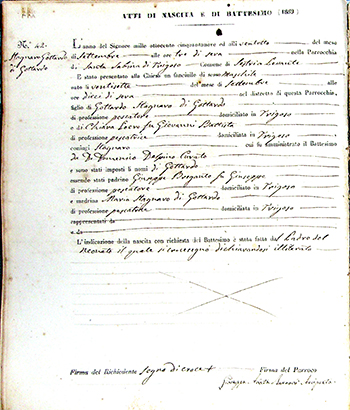 ATTI DI NASCITA E DI BATTESIMO (1859)
N.° 42.
Stagnaro Gottardo
di Gottardo
L'anno del Signore mille ottocento cinquantanove ed alli ventotto del mese
di Settembre alle ore tre di sera nella Parrocchia
di Santa Sabina di Trigoso Comune di Sestri Levante
È stato presentato alla Chiesa un fanciullo di sesso Maschile
nato li ventisette del mese di Settembre alle
ore dieci di sera nel distretto di questa Parrocchia,
figlio di Gottardo Stagnaro di Gottardo
di professione pescatore domiciliato in Trigoso
e di Chiara Leere fu Giovanni Battista
di professione pescatrice domiciliata in Trigoso
coniugi Stagnaro cui fu Amministrato il Battesimo
da D. Domenico Delpino Curato
e sono stati imposti i nomi di Gottardo
essendo stati padrino Giuseppe fu Giuseppe
di professione pescatore domiciliato in Trigoso
e madrina Maria Stagnaro di Gottardo
di professione pescatrice domiciliata in Trigoso
rappresentati da
e da
L'indicazione della nascita con richiesta del Battesimo è stata fatta dal Padre del
neonato il quale dichiarandosi illetterato
Firma del Richiedente segno di croce + Firma del Parroco